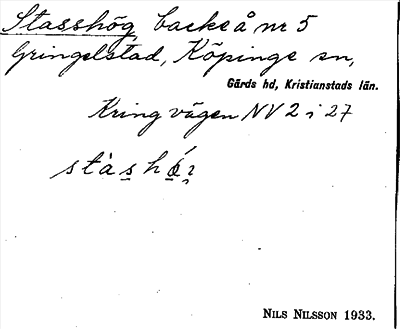 Stasshög backe å nr 5
Gringelstad, Köpinge sn,
Gärds hd, Kristianstads län.
Kring vägen NV 2 i 27
NILS NILSSON 1933.